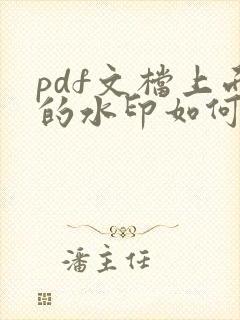 pdf文檔上
的水印如何
潘主任